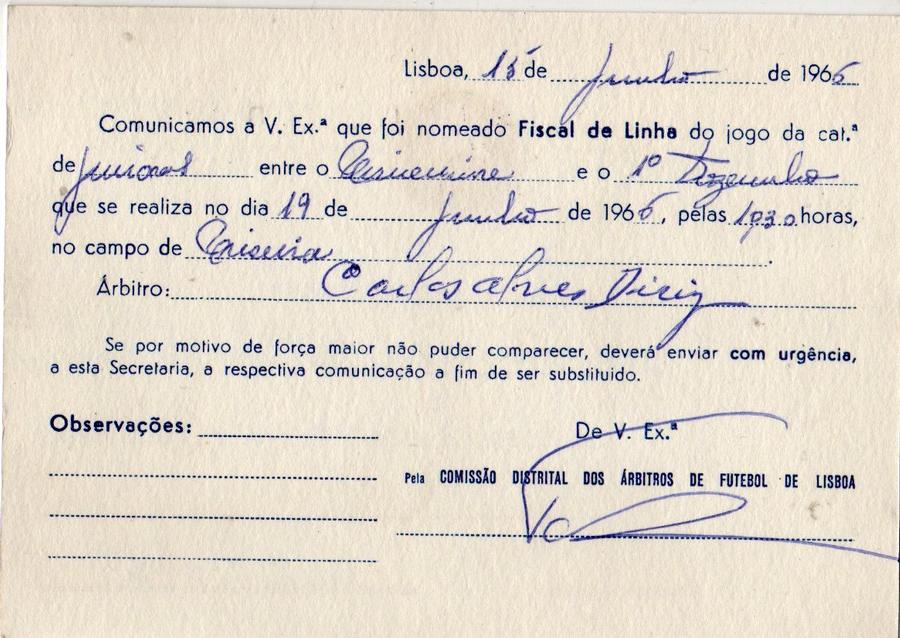 Lisboa, 15 de Junho de 1966
Comunicamos a V. Ex.ª que foi nomeado Fiscal de Linha do jogo da cat.ª
de Juniores entre o e o 1º Dezembro
que se realiza no dia 19 de Junho de 1966, pelas horas,
no campo de
Árbitro: Carlos Alves Diniz
Se por motivo de força maior não puder comparecer, deverá enviar com urgência,
a esta Secretaria, a respectiva comunicação a fim de ser substituido.
Observações:
De V. Ex.ª
Pela COMISSÃO DISTRITAL DOS ÁRBITROS DE FUTEBOL DE LISBOA